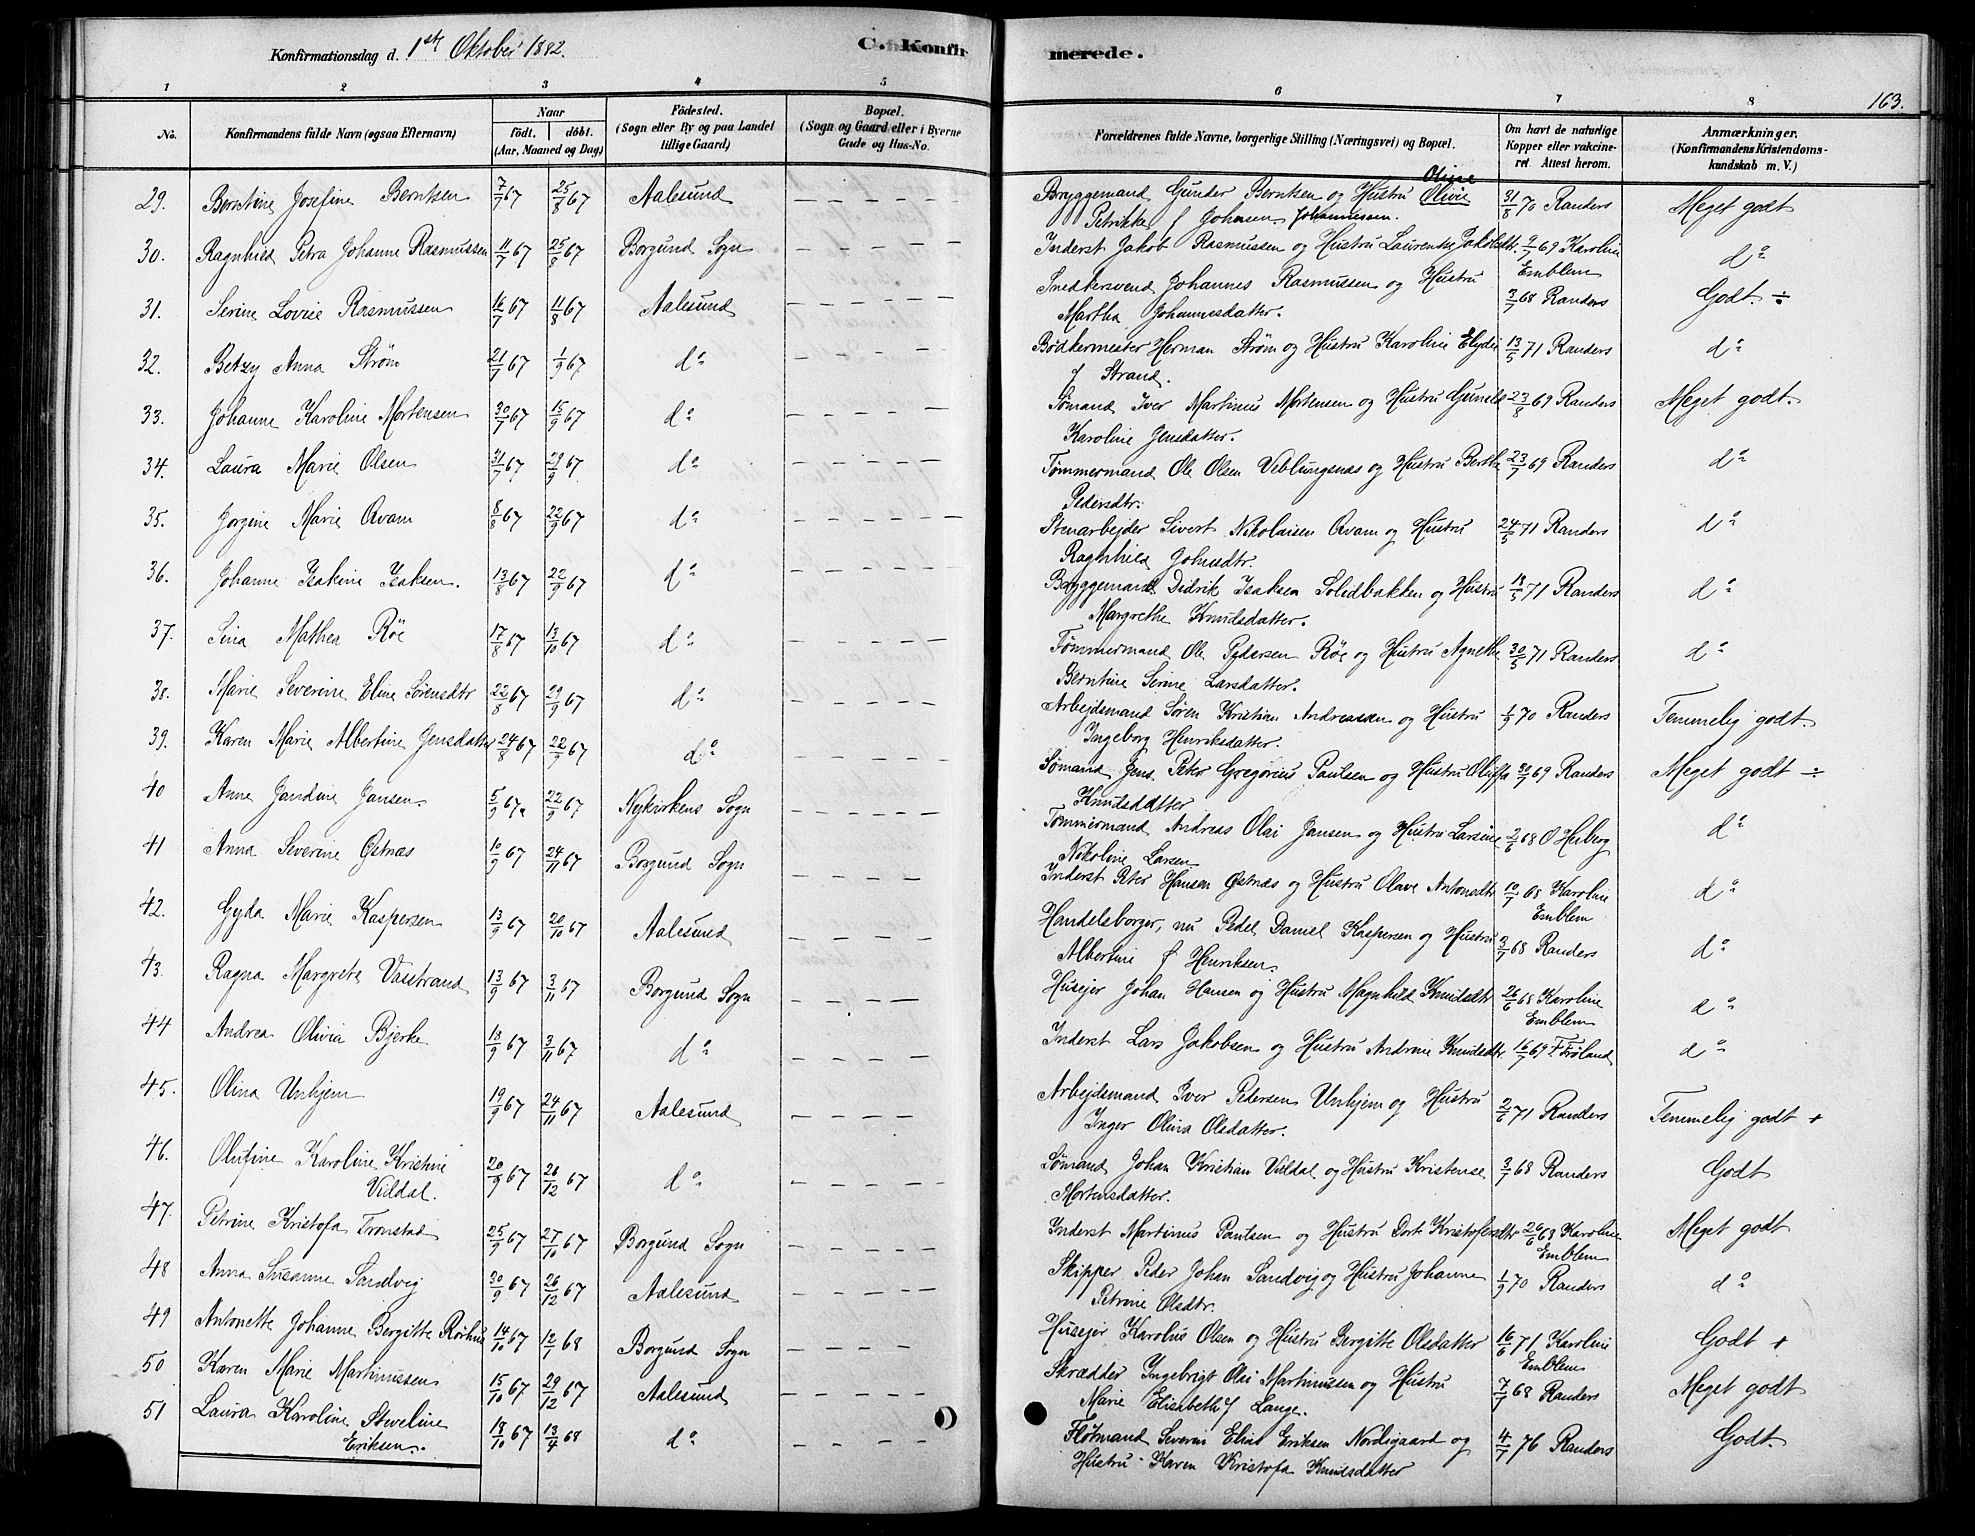 Konfirmationsdag d. 1ste Oktober 1882.
C. Konfirmerede.
163.
1 2 3 4 5 6 7 8
No. | Konfirmandens fulde Navn (ogsaa Efternavn) | Naar födt. döbt. (Aar, Maaned og Dag) | Födested. (Sogn eller By og paa Landet tillige Gaard) | Bopæl. (Sogn og Gaard eller i Byerne Gade og Hus-No. | Forældrenes fulde Navne, borgerlige Stilling (Næringsvei) og Bopæl. | Om havt de naturlige Kopper eller vaccineret Attest herom. | Anmærkninger. (Konfirmandens Kristendomskundskab m. V.)
29. Berntine Josefine Berntsen 7/7 67 25/8 67 Aalesund — Bryggemand Gunder Berntsen og Hustru Olivie Oline Petrikke f Johnsen Johannessen. 31/8 70 Randers Meget godt
30. Ragnhild Petra Johanne Rasmussen 11/7 67 25/8 67 Borgund Sogn — Inderst Jakob Rasmussen og Hustru Laurentse Jakobsdtr. 2/7 69 Karoline Emblem do
31. Serine Lovise Rasmussen 16/7 67 11/8 67 Aalesund — Snedkersvend Johannes Rasmussen og Hustru Martha Johannesdatter. 3/7 68 Randers Godt. ÷
32. Betzy Anna Strøm 21/7 67 1/9 67 do — Bødkermester Herman Strøm og Hustru Karoline Elydie f Strand. 13/5 71 Randers do
33. Johanne Karoline Mortensen 30/7 67 15/9 67 do — Sømand Iver Martinus Mortensen og Hustru Gunelde Karoline Jensdatter. 23/8 69 Randers Meget godt.
34. Laura Marie Olsen 31/7 67 29/9 67 do — Tømmermand Ole Olsen Veblungsnæs og Hustru Berthe Pedersdtr. 23/7 69 Randers do
35. Jorgine Marie Qvam 8/8 67 22/9 67 do — Stenarbejder Sivert Nikolaisen Qvam og Hustru Ragnhild Johnsdtr. 24/5 71 Randers do
36. Johanne Isakine Isaksen. 13/8 67 22/9 67 do — Bryggemand Didrik Isaksen Solidbakken og Hustru Margrethe Knudsdatter. 18/5 71 Randers do
37. Sina Mathea Röe 17/8 67 13/10 67 do — Tømmermand Ole Pedersen Röe og Hustru Agnethe Berntine Serine Larsdatter. 30/5 71 Randers do
38. Marie Severine Eline Sørensdtr 22/8 67 29/9 67 do — Arbejdsmand Søren Kristian Andreassen og Hustru Ingeborg Henriksdatter. 1/9 70 Randers Temmelig godt.
39. Karen Marie Albertine Jensdatter 24/8 67 22/9 67 do — Sømand Jens Peter Gregorius Paulsen og Hustru Oliffa Knudsdatter 30/7 69 Randers Meget godt ÷
40 Anne Jandine Jansen. 5/9 67. 22/9 67 Nykirkens Sogn — Tømmermand Andreas Olai Jansen og Hustru Larsine Nikoline Larsen 2/6 68 O Heiberg do
41 Anna Severine Østnæs 10/9 67 24/11 67 Borgund Sogn — Inderst Peter Hansen Østnæs og Hustru Olave Antonsdtr 10/7 68 Karoline Emblem do
42. Gyda Marie Kaspersen 13/9 67 20/10 67 Aalesund — Handelsborger, nu Pedel Daniel Kaspersen og Hustru Albertine f Henriksen. 3/7 68 Randers do
43. Ragna Margrete Vasstrand 13/9 67 3/11 67 Borgund Sogn — Husejer Johan Hansen og Hustru Magnhild Knudsdtr 26/6 68 Karoline Emblem do
44 Andrea Olivia Bjerke 18/9 67 3/11 67 do — Inderst Lars Jakobsen og Hustru Andrine Knudsdtr 16/7 69 F. Frøland do
45. Olina Unhjem 19/9 67 24/11 67 Aalesund — Arbejdsmand Iver Pedersen Unhjem og Hustru Inger Olina Olsdatter. 2/6 71 Randers Temmelig godt +
46. Olufine Karoline Kristine Vildal. 20/9 67 26/12 67 do — Sømand Johan Kristian Vildal og Hustru Kristense Mortensdatter. 3/7 68 Randers Godt
47. Petrine Kristofa Tronstad 25/9 67 27/10 67 Borgund Sogn — Inderst Martinus Paulsen og Hustru Dort Kristofersdtr 26/6 68 Karoline Emblem Meget godt
48 Anna Susanne Sandvig 30/9 67 26/12 67 Aalesund — Skipper Peder Johan Sandvig og Hustru Johanne Petrine Olsdtr. 1/9 70 Randers do
49 Antonette Johanne Bergitte Rørhus 14/10 67 12/1 68 Borgund Sogn — Husejer Karolus Olsen og Hustru Bergitte Olsdatter 16/6 71 Karoline Emblem Godt +
50 Karen Marie Martinussen 15/10 67 29/12 67 Aalesund — Skrædder Ingebrigt Olai Martinussen og Hustru Marie Elisabeth f Lange. 7/7 68 Randers Meget godt
51 Laura Karoline Steveline Eriksen. 18/10 67 13/4 68 do — Fløtmand Severin Elias Eriksen Nordsgaard og Hustru Karen Kristofa Knudsdatter 4/7 76 Randers Godt.